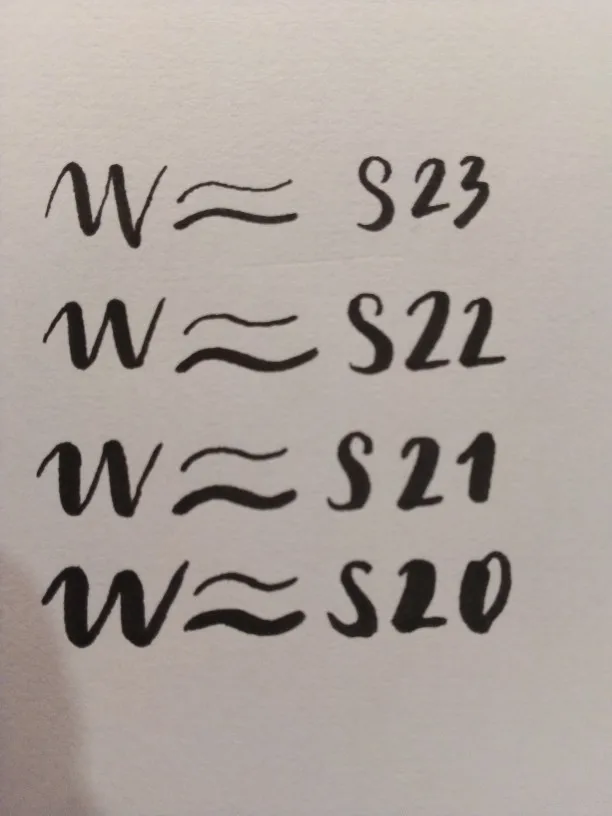 W S23
W S22
W S21
W S20